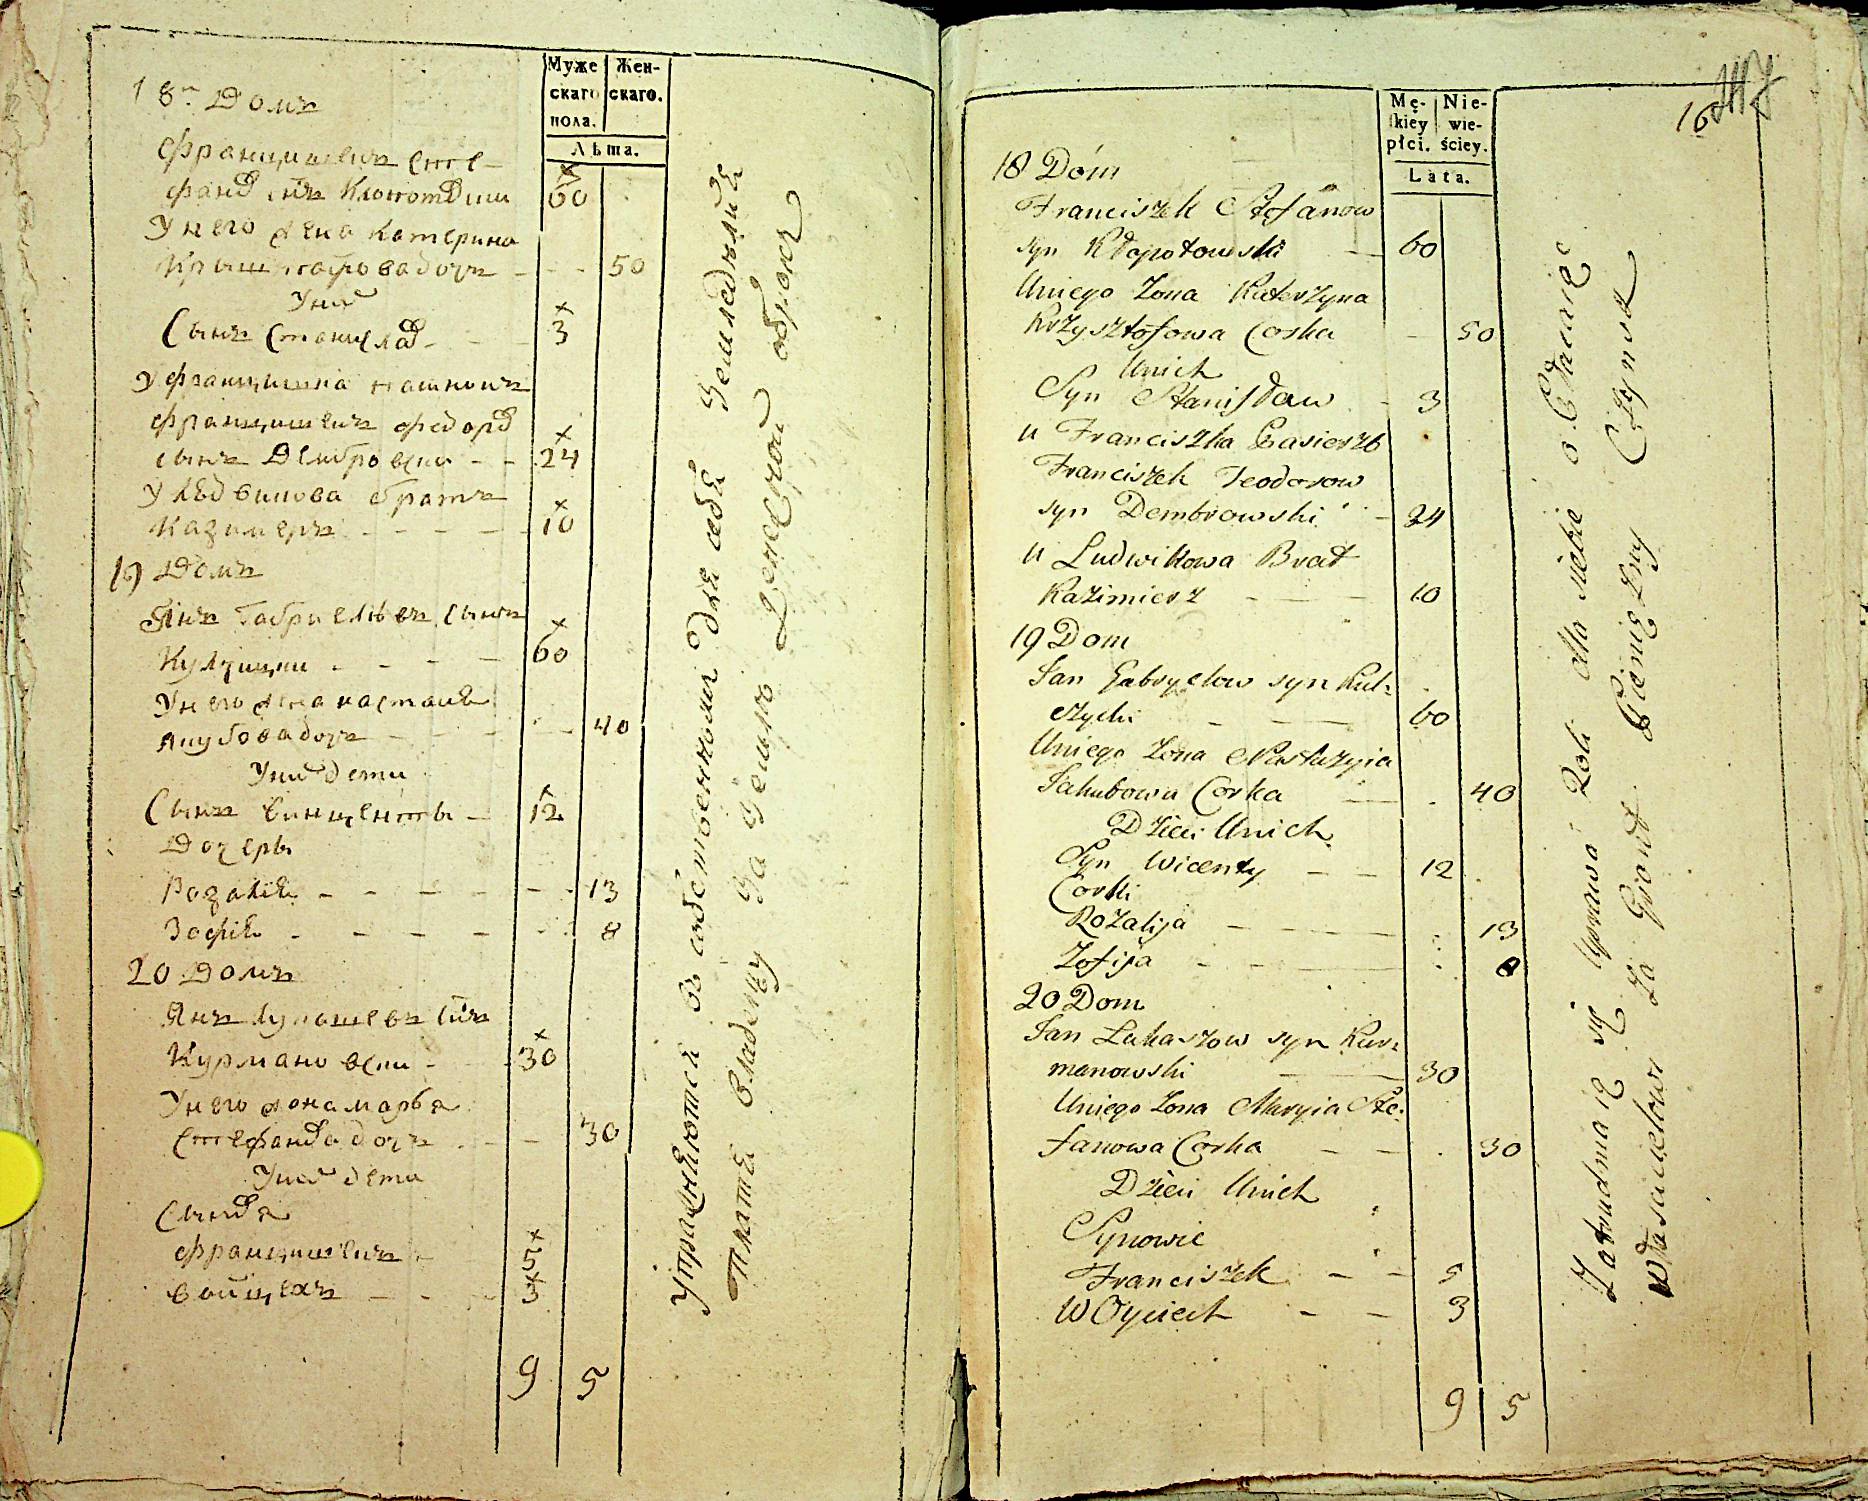 Муже
скаго
пола.
Жен-
скаго.
Лѣта.
18й Домъ
Францишекъ Сте-
фанов снъ Клопотовски
60
У него жена катерина
Крыштафова дочъ - - - 50
У них
Сынъ Станислав - - 3
У францишка пасиербъ
францишекъ федоров
сынъ Дембровски - - 24
У людвикова братъ
Казимеръ - - - - - 10
19 Домъ
Янъ Габриелевъ сынъ
Кулчицки - - - - 60
У него жена настазия
якубова дочъ - - - - 40
У них дети
Сынъ винценты - 12
Дочеры
Розалия - - - - - - 13
Зофия - - - - - - 8
20 Домъ
Янъ Лукашевъ снъ
Курмановски - - 30
У него жона марья
Стефанова дочъ - - 30
У них дети
Сыновя
францишекъ - 5
войцехъ - - - 3
9 5
упражняются въ собственномъ для себя земледѣлии
платя владельцу за землю денежной оброкъ
Mę-
skiey
płci.
Nie-
wie-
ściey.
Lata.
16
18 Dóm
Franciszek Stefanow
syn Kłopotowski — 60
Uniego Zona Katerzyna
Krzysztofowa Corka - 50
Unich
Syn Stanisław - 3
u Franciszka Pasierzb
Franciszek Teodorow
syn Dembrowski - 24
u Ludwikowa Brat
Kazimierz - - - 10
19 Dom
Jan Gabryelow syn Kul-
czycki - - - 60
Uniego Zona Nastazyia
Jakubowa Corka — 40
Dzieci Unich
Syn Wicenty - - 12
Corki
Rozalija - - - 13
Zofija - - - 8
20 Dom
Jan Łukaszow syn Kur-
manowski — 30
Uniego Zona Maryia Ste-
fanowa Corka - - 30
Dzieci Unich
Synowie
Franciszek - - 5
Woyciech - - 3
9 5
Zatrudniaią się uprawą Roli dla siebie o Płacaiąc
Własicielowi za Grąnt Pienięzny Czynsz